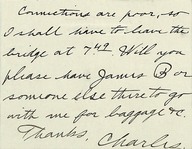 Connections are poor, so
I shall have to leave the
bridge at 7 49. Will you
please have James B or
someone else there to go
with me for baggage &c.
Thanks, Charles.